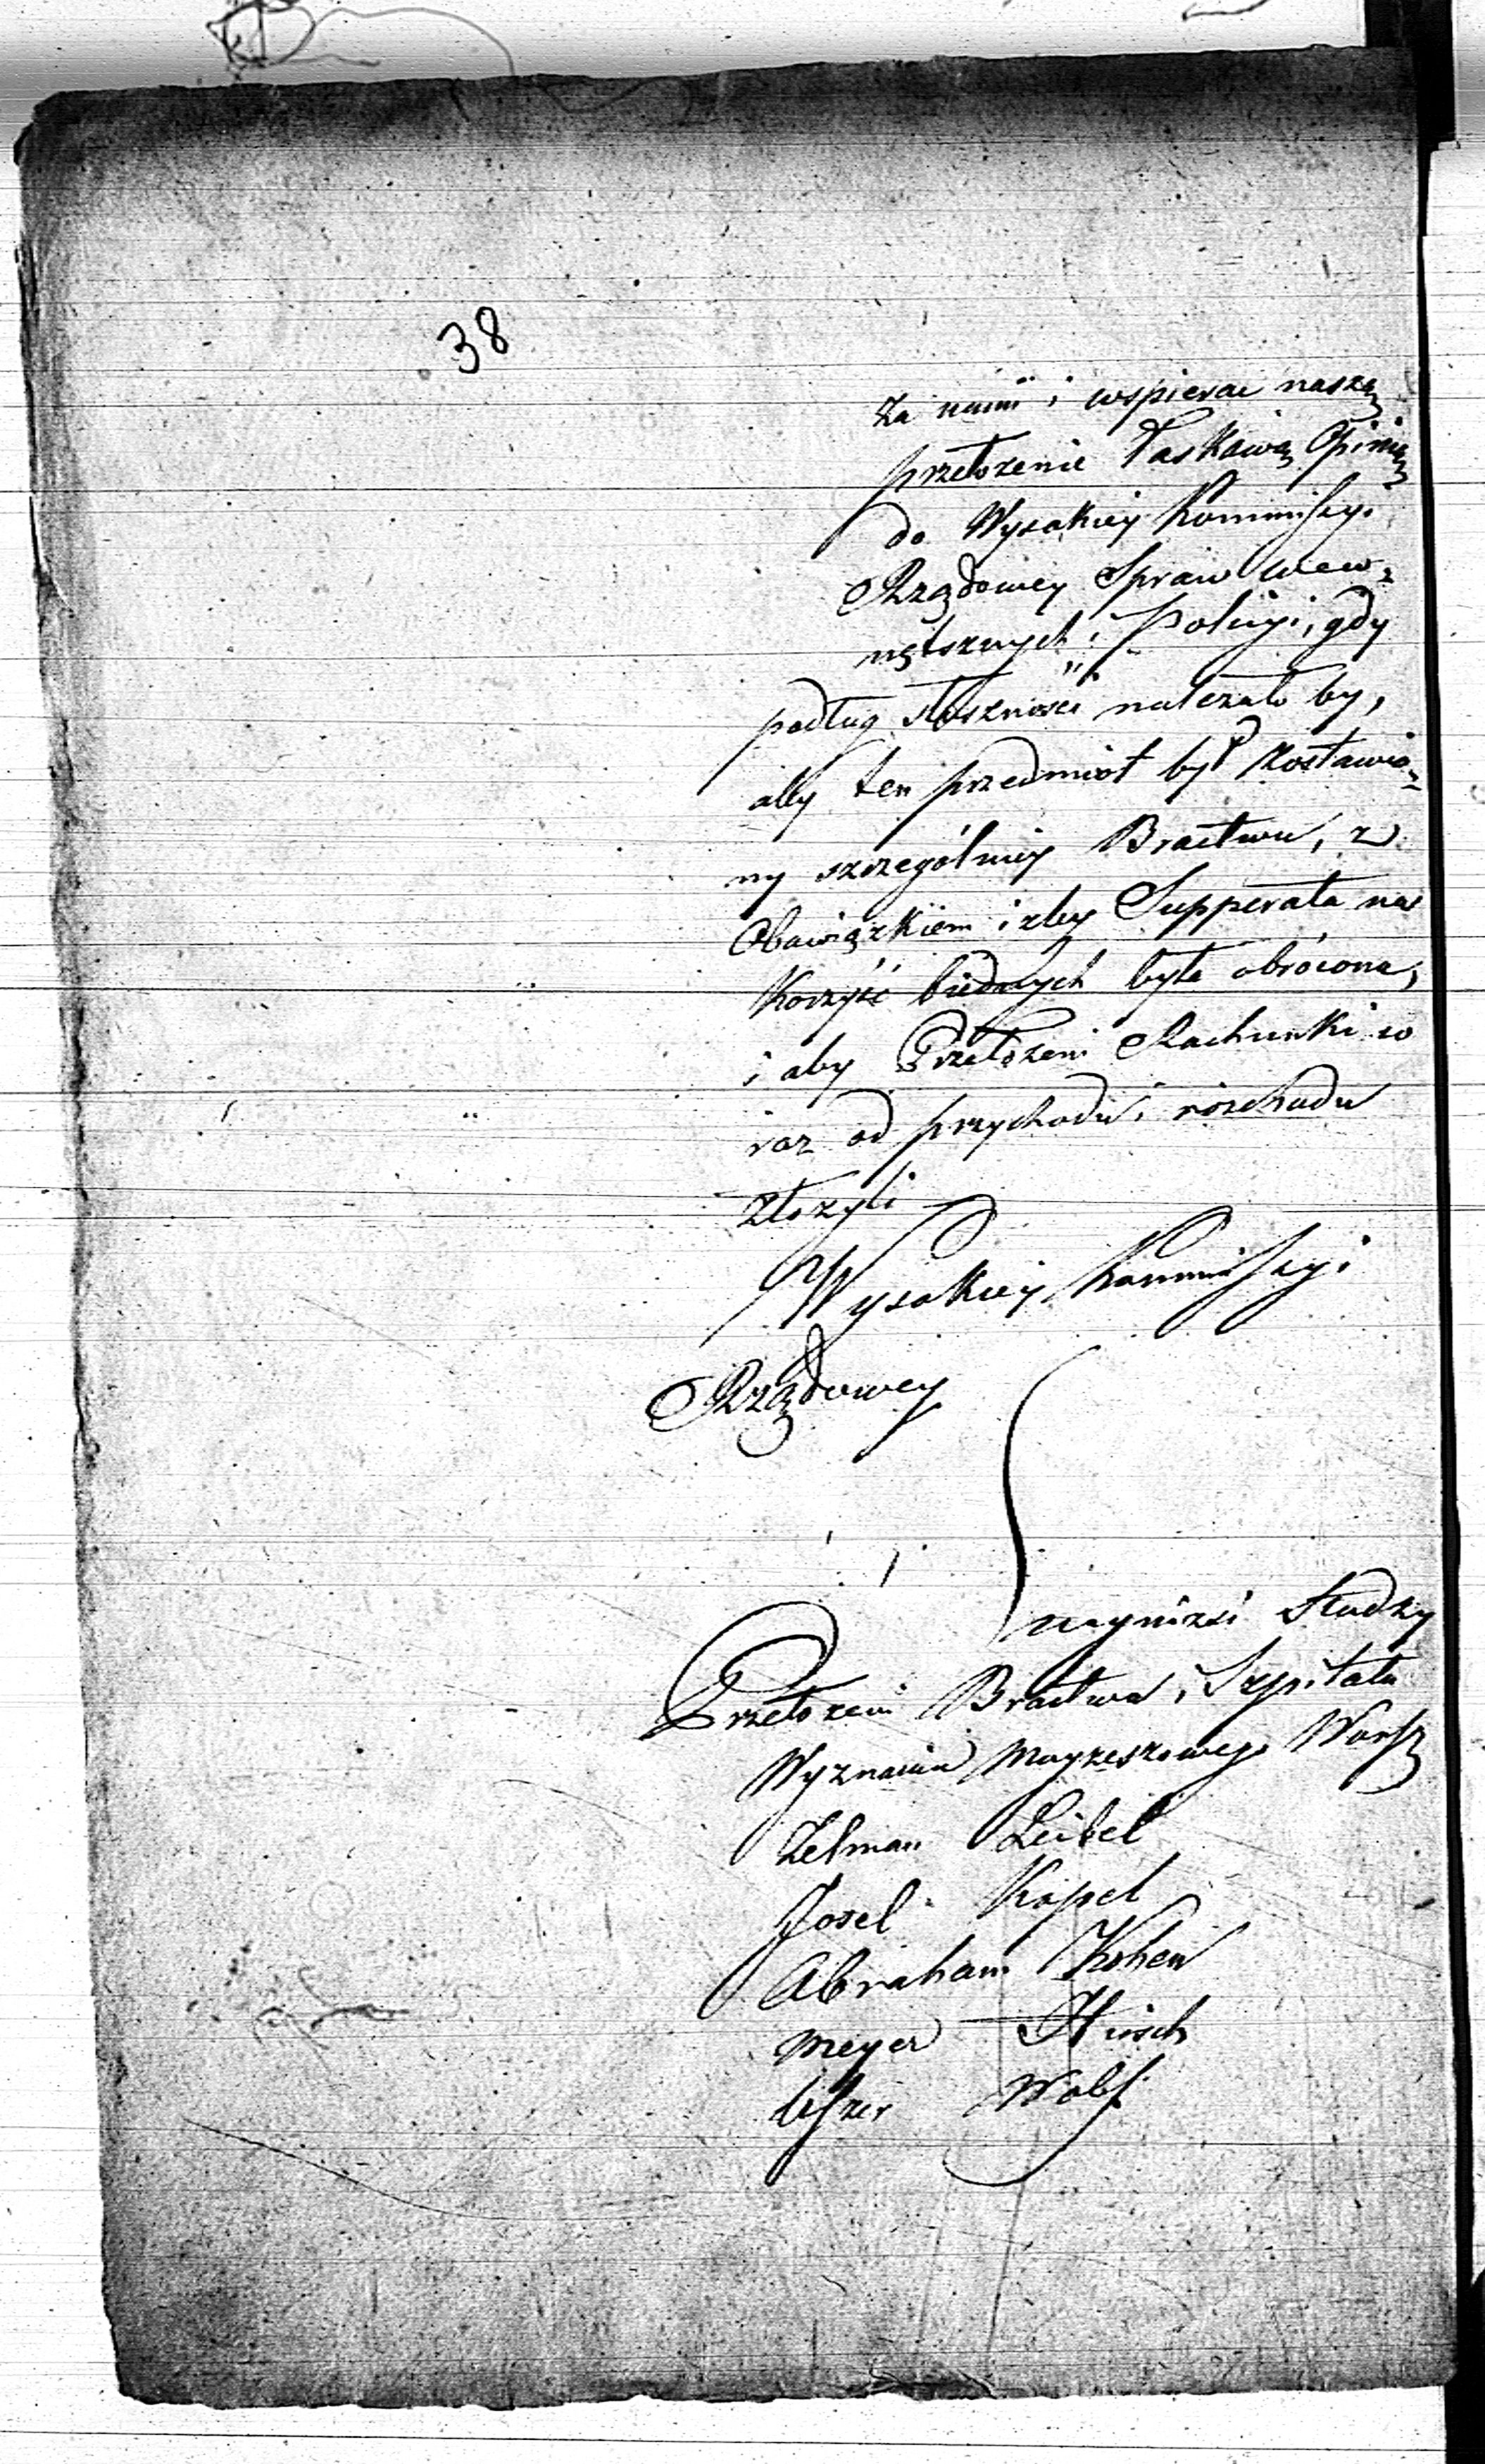 38
za nami i wspierac naszą
przełozenie Łaskawą Opinią
do Wysokiey Kommissyi
Rządowey Spraw Wew=
nętrznych i Policyi, gdy
podług słuszności nalezało by,
aby ten przedmiot był zostawio=
ny szczególniey Bractwu, z
Obowiązkiem izby Supperata na
Korzyść biednych była obrócona,
i aby Przełozeni Rachunki co
raz od przychodu i rozchodu
złozyli
Wysokiey Kommissyi
Rządowey
naynizsi Słudzy
Przełozeni Bractwa i Szpitala
Wyznania Moyzeszowego Warsz
Zelman Leibel
Josel Kopel
Abraham Kohen
Meyer Hirsch
Wolf